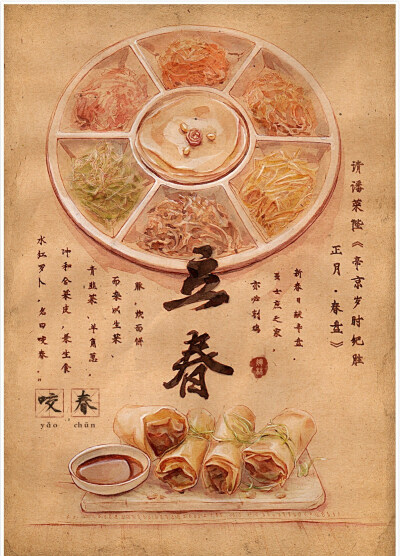 请潘荣陛《帝京岁时纪胜
正月·春盘》
新春日献辛盘。
虽士庶之家，
亦必割鸡
豚，炊面饼
而杂以生菜、
青韭菜、羊角葱，
冲和合菜皮，兼生食
水红萝卜，名曰咬春。”
立春
咬春
yǎo chūn